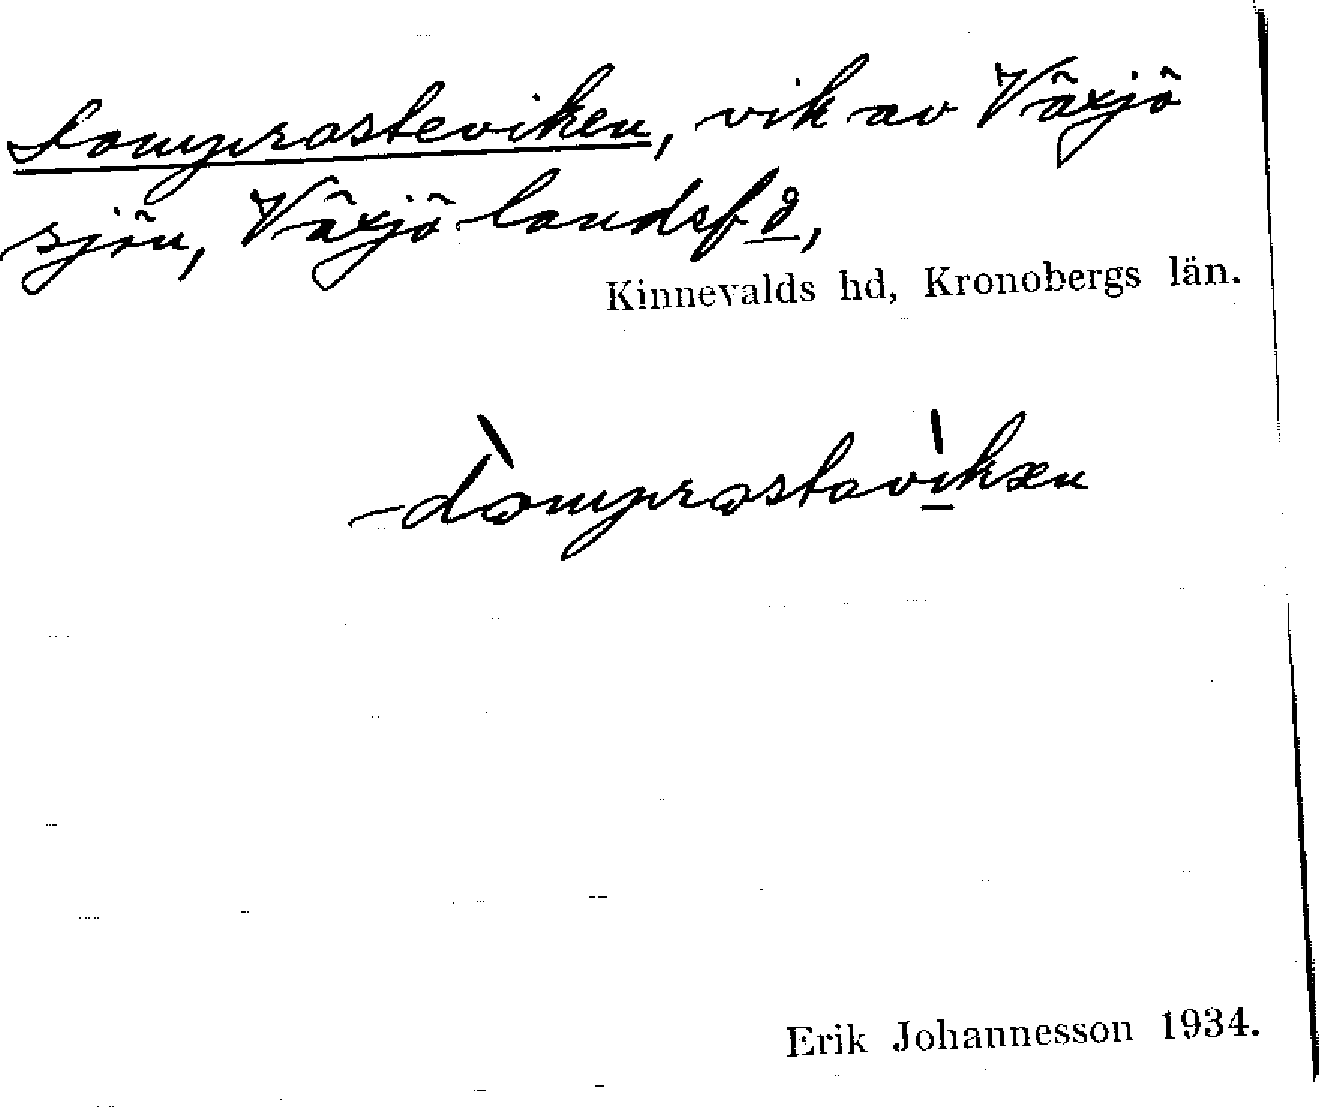 Domprosteviken, vik av Växjö
sjön, Växjö landsfd,
Kinnevalds hd, Kronobergs län.
dòmprostavíkæn
Erik Johannesson 1934.